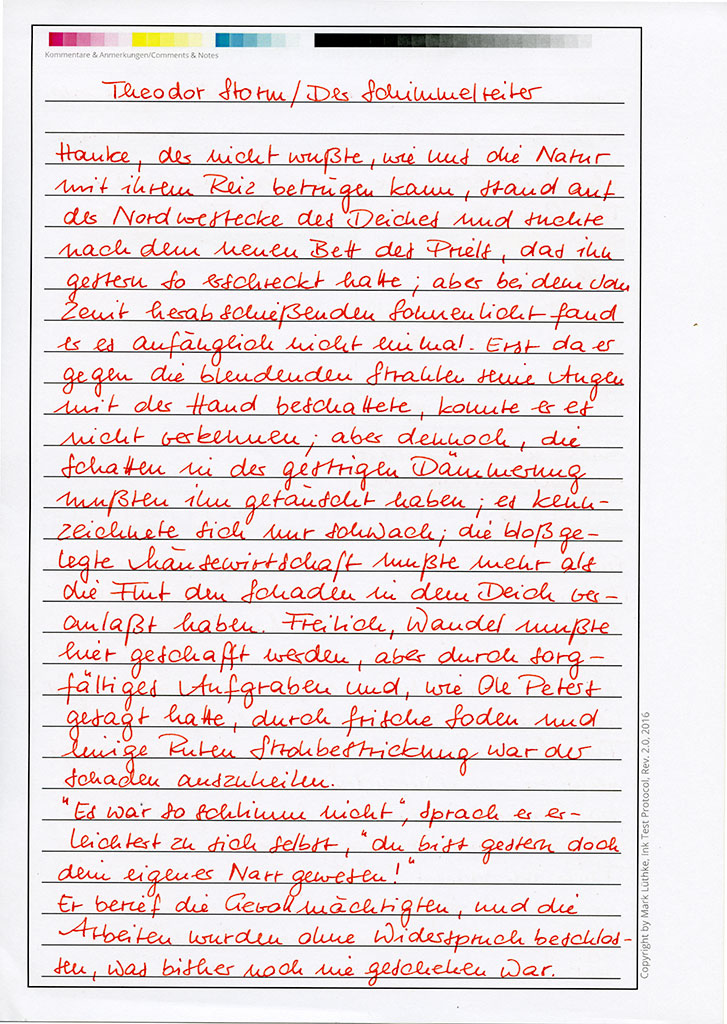 Kommentare & Anmerkungen/Comments & Notes
Theodor Storm/Der Schimmelreiter
Hauke, der nicht wußte, wie uns die Natur
mit ihrem Reiz betrügen kann, stand auf
der Nordwestecke des Deiches und suchte
nach dem neuen Bett des Priels, das ihn
gestern so erschreckt hatte; aber bei dem vom
Zenit herabschießenden Sonnenlicht fand
er es anfänglich nicht einmal. Erst da er
gegen die blendenden Strahlen seine Augen
mit der Hand beschattete, konnte er es
nicht verkennen; aber dennoch, die
Schatten in der gestrigen Dämmerung
mußten ihn getäuscht haben; es kenn-
zeichnete sich nur schwach; die bloßge-
legte Mäusewirtschaft mußte mehr als
die Flut den Schaden in dem Deich ver-
anlaßt haben. Freilich, Wandel mußte
hier geschafft werden, aber durch sorg-
fältiges Aufgraben und, wie Ole Peters
gesagt hatte, durch frische Soden und
einige Ruten Strohbestrickung war der
Schaden auszuheilen.
"Es war so schlimm nicht", sprach er er-
leichtert zu sich selbst, "du bist gestern doch
dein eigener Narr gewesen!"
Er berief die Gevollmächtigten, und die
Arbeiten wurden ohne Widerspruch beschlos-
sen, was bisher noch nie geschehen war.
Copyright by Mark Lüthke, Ink Test Protocol, Rev. 2.0, 2016